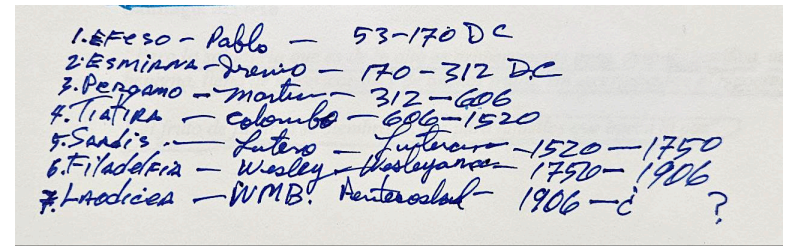 1. EFESO - Pablo - 53-170 DC
2. ESMIRNA - Irenio - 170-312 DC
3. PERGAMO - Martin - 312-606
4. TIATIRA - Colombo - 606-1520
5. Sardis. - Lutero - Luterana - 1520-1750
6. FiladelFia - Wesley - Wesleyana - 1750-1906
7. LAodicea - WMB. Pentecostal - 1906-¿ ?